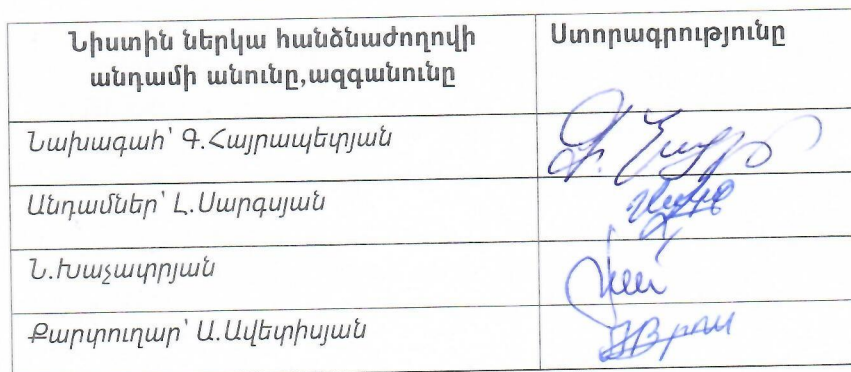 Նիստին ներկա հանձնաժողովի
անդամի անունը,ազգանունը
Ստորագրությունը
Նախագահ՝ Գ.Հայրապետյան
Անդամներ՝ Լ.Սարգսյան
Ն.Խաչատրյան
Քարտուղար՝ Ա.Ավետիսյան